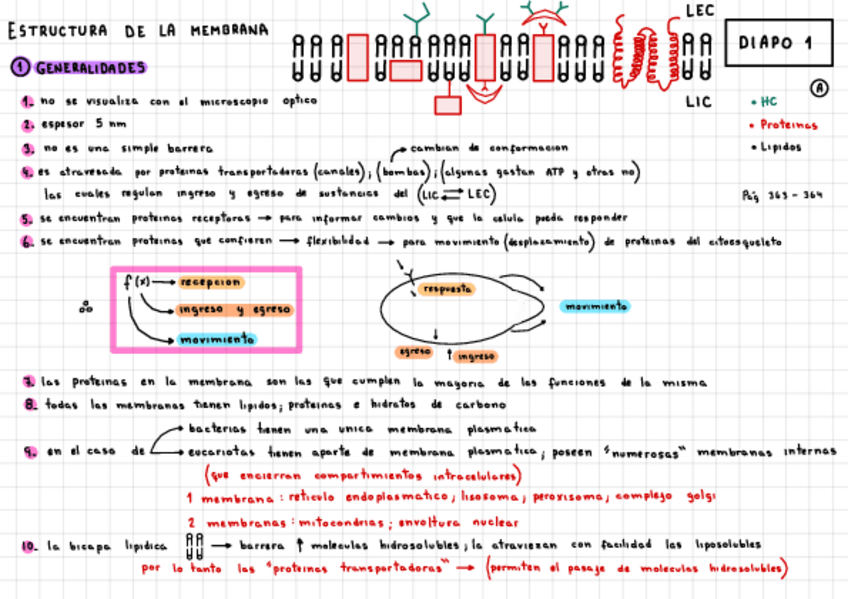 ESTRUCTURA DE LA MEMBRANA
LEC
DIAPO 1
1 GENERALIDADES
A
LIC
• HC
• Proteinas
• Lipidos
1. no se visualiza con el microscopio optico
2. espesor 5 nm
3. no es una simple barrera
cambian de conformacion
4. es atravesada por proteinas transportadoras (canales); (bombas); (algunas gastan ATP y otras no)
las cuales regulan ingreso y egreso de sustancias del (LIC ⇄ LEC)
Pág 363 - 364
5. se encuentran proteinas receptoras → para informar cambios y que la celula pueda responder
6. se encuentran proteinas que confieren → flexibilidad → para movimiento (desplazamiento) de proteinas del citoesqueleto
f(x) → recepcion
ingreso y egreso
movimiento
respuesta
movimiento
egreso
ingreso
7. las proteinas en la membrana son las que cumplen la mayoria de las funciones de la misma
8. todas las membranas tienen lipidos; proteinas e hidratos de carbono
bacterias tienen una unica membrana plasmatica
9. en el caso de
eucariotas tienen aparte de membrana plasmatica, poseen "numerosas" membranas internas
(que encierran compartimientos intracelulares)
1 membrana: reticulo endoplasmatico; lisosoma; peroxisoma; complejo golgi
2 membranas: mitocondrias; envoltura nuclear
10. la bicapa lipidica → barrera ↑ moleculas hidrosolubles; la atraviezan con facilidad las liposolubles
por lo tanto las "proteinas transportadoras" → (permiten el pasaje de moleculas hidrosolubles)